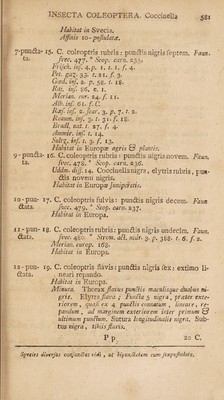 INSECTA COLEOPTERA. Coccinella 581
Habitat in Svecia.
Affinis 10-pustulatæ.
7-puncta- 15. C. coleoptris rubris: punctis nigris septem. Faun.
ta. svec. 477.* Scop. carn. 235.
Frisch. inf. 4. p. 1. t. 1. f. 4.
Pet. gaz. 33. t. 21. f. 3.
Goed. inf. 2. p. 58. t. 18.
Raj. inf. 86. n. 1.
Merian. eur. 24. f. 11.
Alb. inf. 61. f. C.
Reaum. inf. 3. t. 31. f. 18.
Bradl. nat. t. 27. f. 4.
Sulz. inf. t. 3. f. 13.
Habitat in Europæ agris & plantis.
9-puncta- 16. C. coleoptris rubris: punctis nigris novem. Faun.
ta. svec. 478.* Scop. carn. 236.
Uddm. diss. 14. Coccinella nigra, elytris rubris, pun-
ctis novem nigris.
Habitat in Europæ juniperetis.
10-pun- 17. C. coleoptris fulvis: punctis nigris decem. Faun.
ctata. svec. 479. * Scop. carn. 237.
Habitat in Europa.
11-pun- 18. C. coleoptris rubris: punctis nigris undecim. Faun.
ctata. svec. 480. * Strom. act. nidr. 3. p. 388. t. 6. f. 2.
Merian. europ. 168.
Habitat in Europa.
12-pun- 19. C. coleoptris flavis: punctis nigris sex: extimo li-
ctata. neari repando.
Habitat in Europa.
Minuta. Thorax flavus punctis maculisque duabus ni-
gris. Elytra flava; Puncta 5 nigra, præter exte-
riorem, quasi ex 4 punctis connatum, lineare, re-
pandum, ad marginem exteriorem inter primum &
ultimum punctum. Sutura longitudinalis nigra. Sub-
tus nigra, tibiis flavis.
P p 20 C.
Species diversas conjunctas vidi, ut bipunctatam cum sexpustulata.